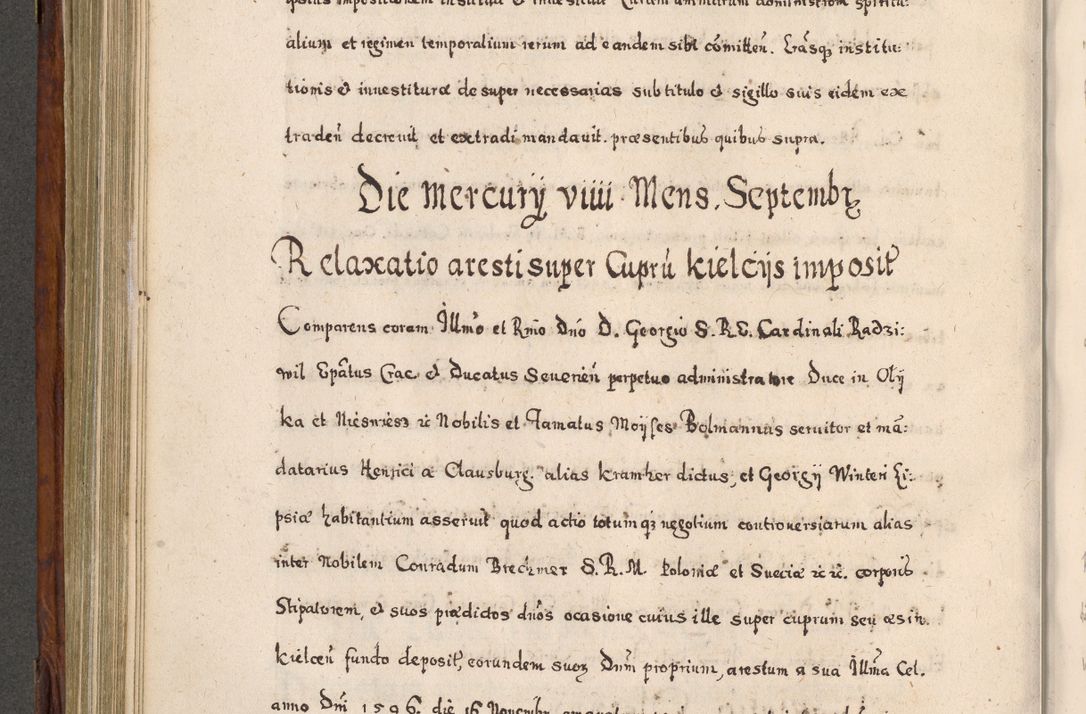 alium et regimen temporalium rerum ad eandem sibi cōmitteñ. Lrāsq3 institu:
tionis & inuestituræ desuper necessarias sub titulo & sigillo suis eidem ex
tradeñ decreuit et extradi mandauit. præsentibus quibus supra.
Die Mercurÿ viiii Mens. Septembr
Relaxatio aresti super Cuprũ kielcijs imposit
Comparens coram Illmo et Rmo Dno D. Georgio S.R.E. Cardinali Radzi:
wil Epātus Crac & Ducatus Seuerieñ perpetuo administratore Duce in Olÿ
ka et Niesniesz &c Nobilis et Famatus Moÿses Bolmannus seruitor et mā:
datarius Henrici a Clausburg. alias kramher dictus, et Georgÿ Winteri Li:
psiæ habitantium asseruit quod actio totumq3 negotium controuersiarum alias
inter Nobilem Conradum Brechmer S.R.M. Poloniæ et Sueciæ &c &c. corporis
Stipatorem, & suos prædictos dnos ocasione cuius ille super cuprum seu æs in
kielceñ fundo deposit, eorundem suor Dnm proprium, arestum a sua Illma Cel.
anno Dni 1596. die 16 Nouembr